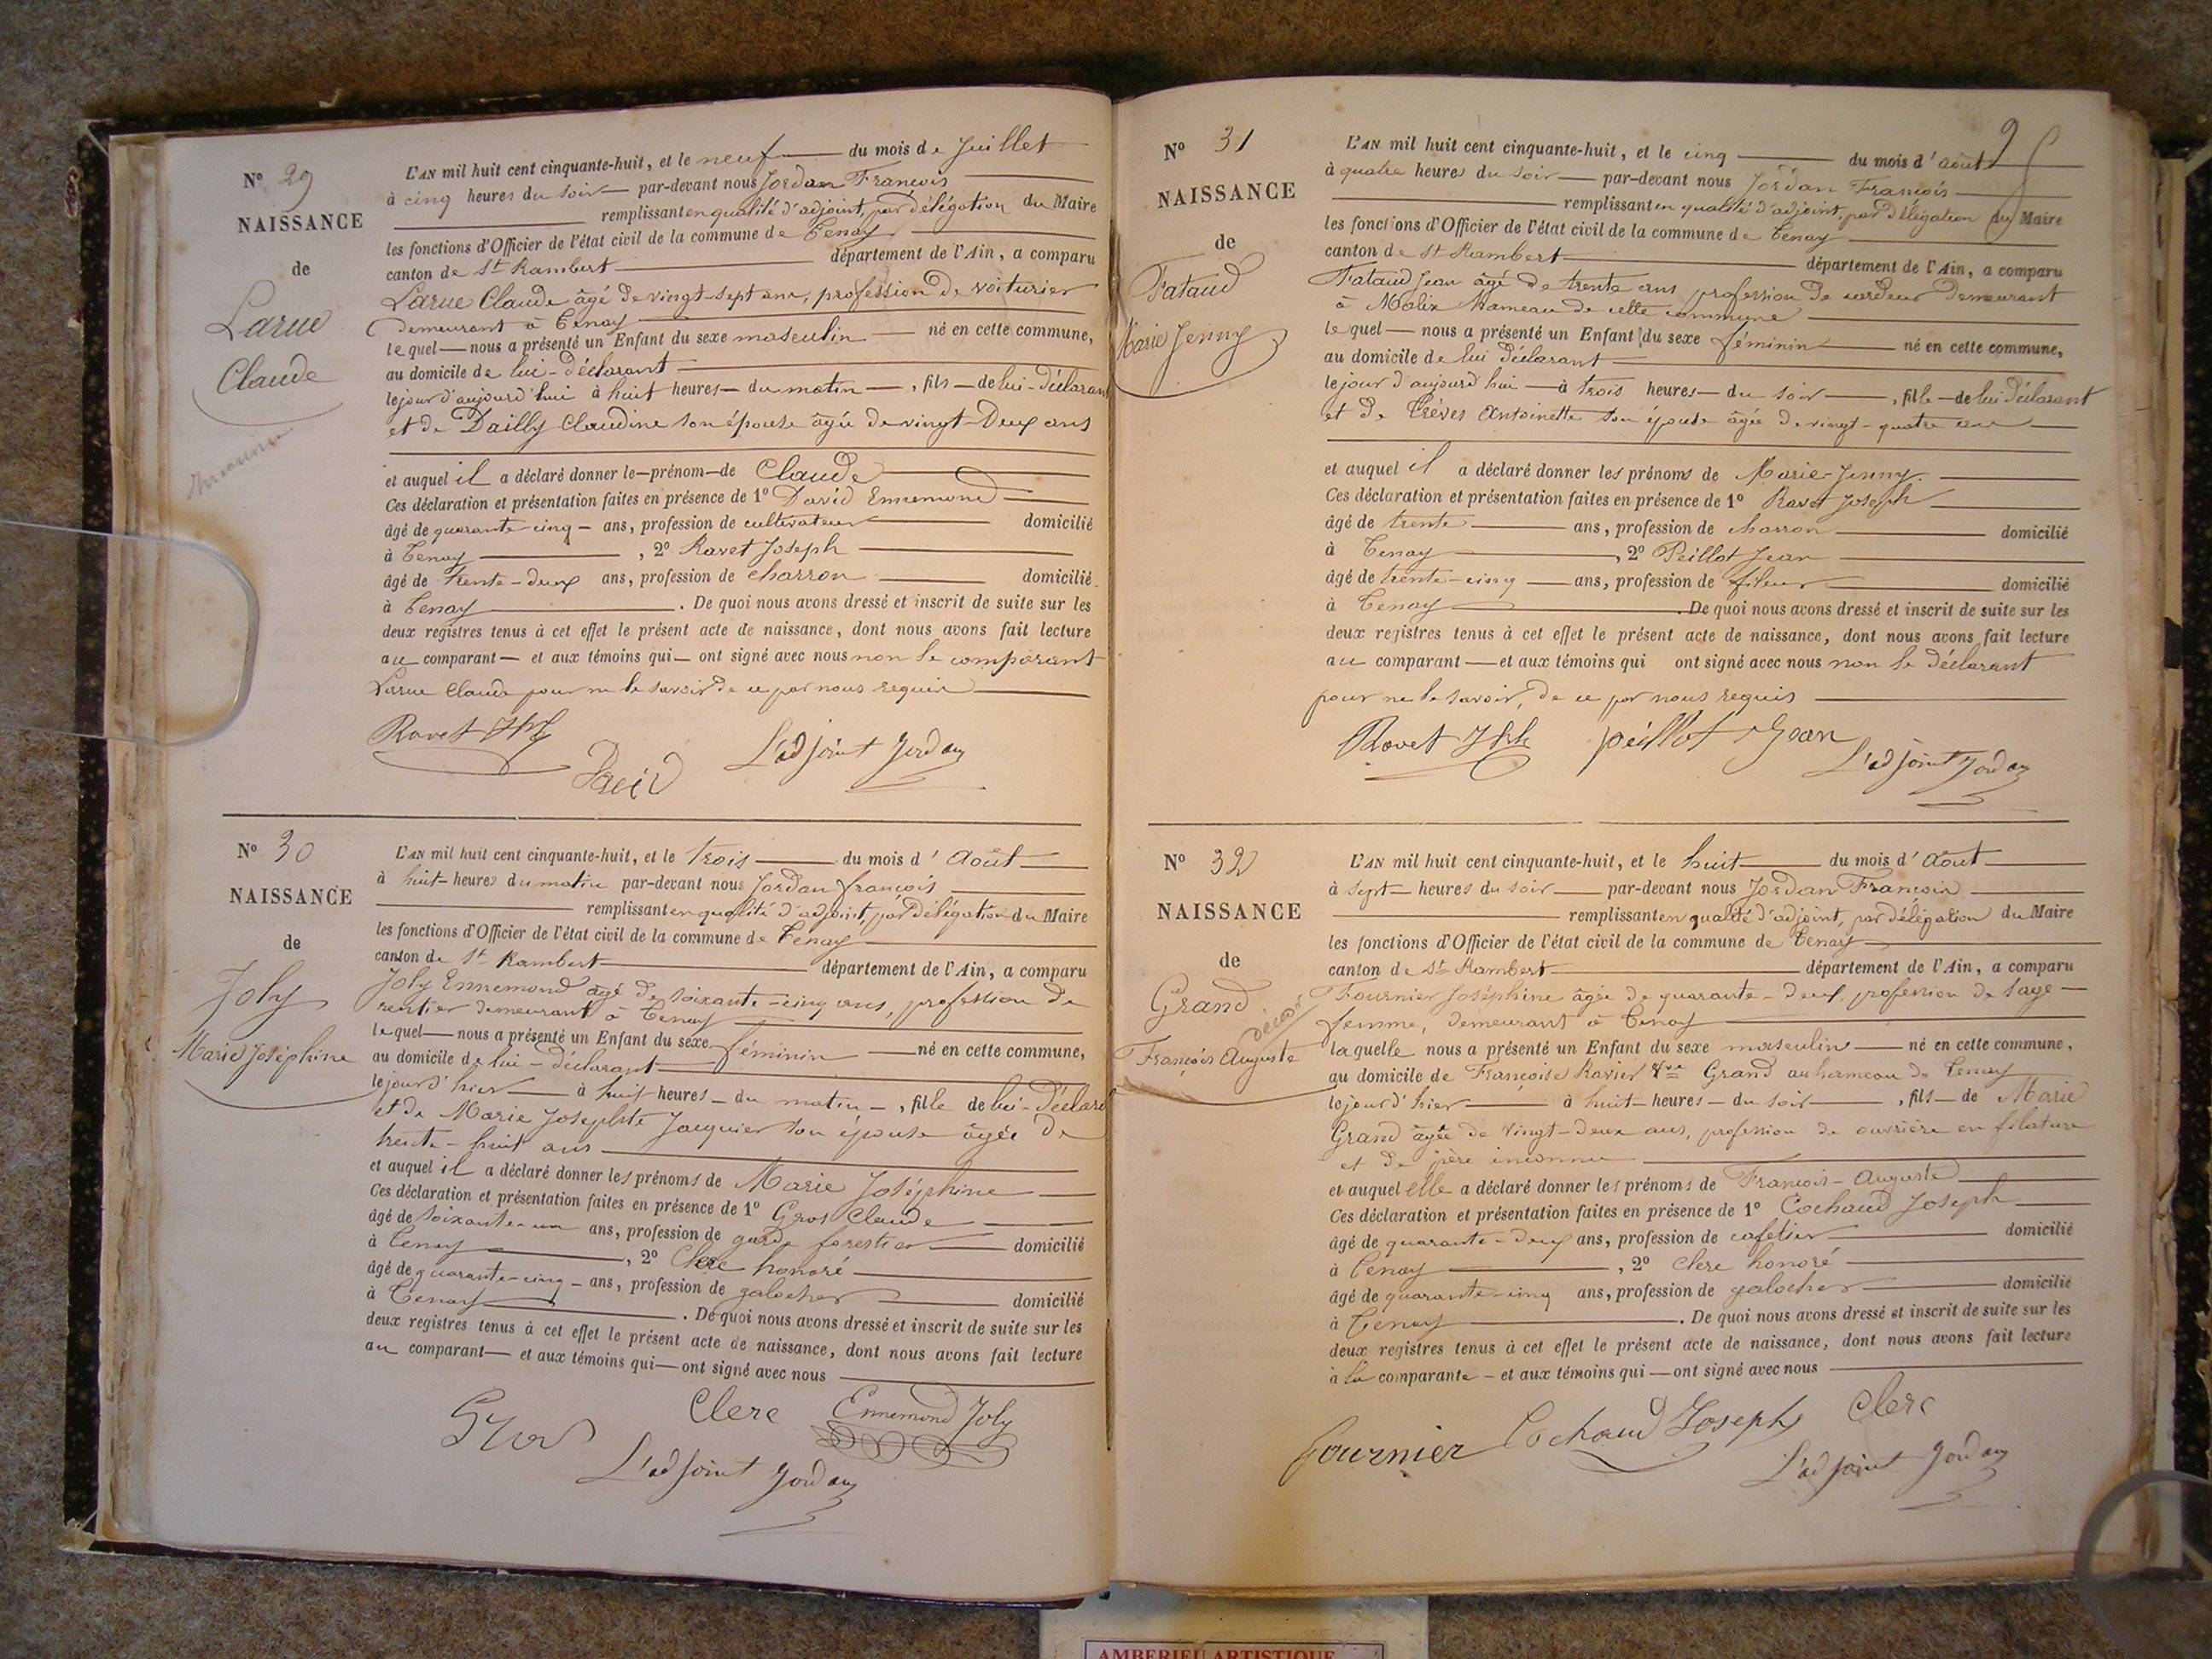 N° 29
NAISSANCE
de
Larue
Claude
L'AN mil huit cent cinquante-huit, et le neuf du mois de Juillet
à cinq heures du soir par-devant nous Jordan François
remplissant en qualité d'adjoint, par délégation du Maire
les fonctions d'Officier de l'état civil de la commune de Tenay
canton de St Rambert département de l'Ain, a comparu
Larue Claude âgé de vingt-sept ans, profession de voiturier
demeurant à Tenay
lequel nous a présenté un Enfant du sexe masculin né en cette commune,
au domicile de lui-déclarant
le jour d'aujourd'hui à huit heures du matin, fils de lui-déclarant
et de Dailly Claudine son épouse âgée de vingt-deux ans
et auquel il a déclaré donner le prénom de Claude
Ces déclaration et présentation faites en présence de 1° David Ennemond
âgé de quarante-cinq ans, profession de cultivateur domicilié
à Tenay, 2° Ravet Joseph
âgé de trente-deux ans, profession de charron domicilié
à Tenay. De quoi nous avons dressé et inscrit de suite sur les
deux registres tenus à cet effet le présent acte de naissance, dont nous avons fait lecture
au comparant et aux témoins qui ont signé avec nous non le comparant
Larue Claude pour ne le savoir de ce par nous requis
Ravet Jph
David
L'adjoint Jordan
N° 30
NAISSANCE
de
Joly
Marie Joséphine
L'AN mil huit cent cinquante-huit, et le trois du mois d'Août
à huit heures du matin par-devant nous Jordan françois
remplissant en qualité d'adjoint, par délégation du Maire
les fonctions d'Officier de l'état civil de la commune de Tenay
canton de St Rambert département de l'Ain, a comparu
Joly Ennemond âgé de soixante-cinq ans, profession de
rentier demeurant à Tenay
lequel nous a présenté un Enfant du sexe féminin né en cette commune,
au domicile de lui-déclarant
le jour d'hier à huit heures du matin, fille de lui-déclarant
et de Marie Josephte Jacquier son épouse âgée de
trente-huit ans
et auquel il a déclaré donner les prénoms de Marie Joséphine
Ces déclaration et présentation faites en présence de 1° Gros Claude
âgé de soixante-un ans, profession de garde forestier domicilié
à Tenay, 2° Clerc honoré
âgé de quarante-cinq ans, profession de galocher domicilié
à Tenay. De quoi nous avons dressé et inscrit de suite sur les
deux registres tenus à cet effet le présent acte de naissance, dont nous avons fait lecture
au comparant et aux témoins qui ont signé avec nous
Gros
Clerc
Ennemond Joly
L'adjoint Jordan
N° 31
NAISSANCE
de
Fataud
Marie Jenny
L'AN mil huit cent cinquante-huit, et le cinq du mois d'août
à quatre heures du soir par-devant nous Jordan François
remplissant en qualité d'adjoint, par délégation du Maire
les fonctions d'Officier de l'état civil de la commune de Tenay
canton de St Rambert département de l'Ain, a comparu
Fataud Jean âgé de trente ans profession de cardeur demeurant
à Malix Hameau de cette commune
lequel nous a présenté un Enfant du sexe féminin né en cette commune,
au domicile de lui déclarant
le jour d'aujourd'hui à trois heures du soir, fille de lui déclarant
et de Trèves Antoinette son épouse âgée de vingt-quatre ans
et auquel il a déclaré donner les prénoms de Marie-Jenny.
Ces déclaration et présentation faites en présence de 1° Ravet Joseph
âgé de trente ans, profession de charron domicilié
à Tenay, 2° Peillot Jean
âgé de trente-cinq ans, profession de fileur domicilié
à Tenay. De quoi nous avons dressé et inscrit de suite sur les
deux registres tenus à cet effet le présent acte de naissance, dont nous avons fait lecture
au comparant et aux témoins qui ont signé avec nous non le déclarant
pour ne le savoir, de ce par nous requis
Ravet Jph
peillot Jean
L'adjoint Jordan
N° 32
NAISSANCE
de
Grand
décédé
François Auguste
L'AN mil huit cent cinquante-huit, et le huit du mois d'Août
à sept heures du soir par-devant nous Jordan François
remplissant en qualité d'adjoint, par délégation du Maire
les fonctions d'Officier de l'état civil de la commune de Tenay
canton de St Rambert département de l'Ain, a comparu
Fournier Joséphine âgée de quarante-deux, profession de sage-
femme, demeurant à Tenay
laquelle nous a présenté un Enfant du sexe masculin né en cette commune,
au domicile de Françoise Ravier Vve Grand au hameau de Tenay
le jour d'hier à huit heures du soir, fils de Marie
Grand âgée de vingt-deux ans, profession de ouvrière en filature
et de père inconnu
et auquel elle a déclaré donner les prénoms de François-Auguste
Ces déclaration et présentation faites en présence de 1° Cochaud Joseph
âgé de quarante-deux ans, profession de cafetier domicilié
à Tenay, 2° Clerc honoré
âgé de quarante-cinq ans, profession de galocher domicilié
à Tenay. De quoi nous avons dressé et inscrit de suite sur les
deux registres tenus à cet effet le présent acte de naissance, dont nous avons fait lecture
à la comparante et aux témoins qui ont signé avec nous
fournier
Cochaud Joseph
Clerc
L'adjoint Jordan
AMBERIEU ARTISTIQUE